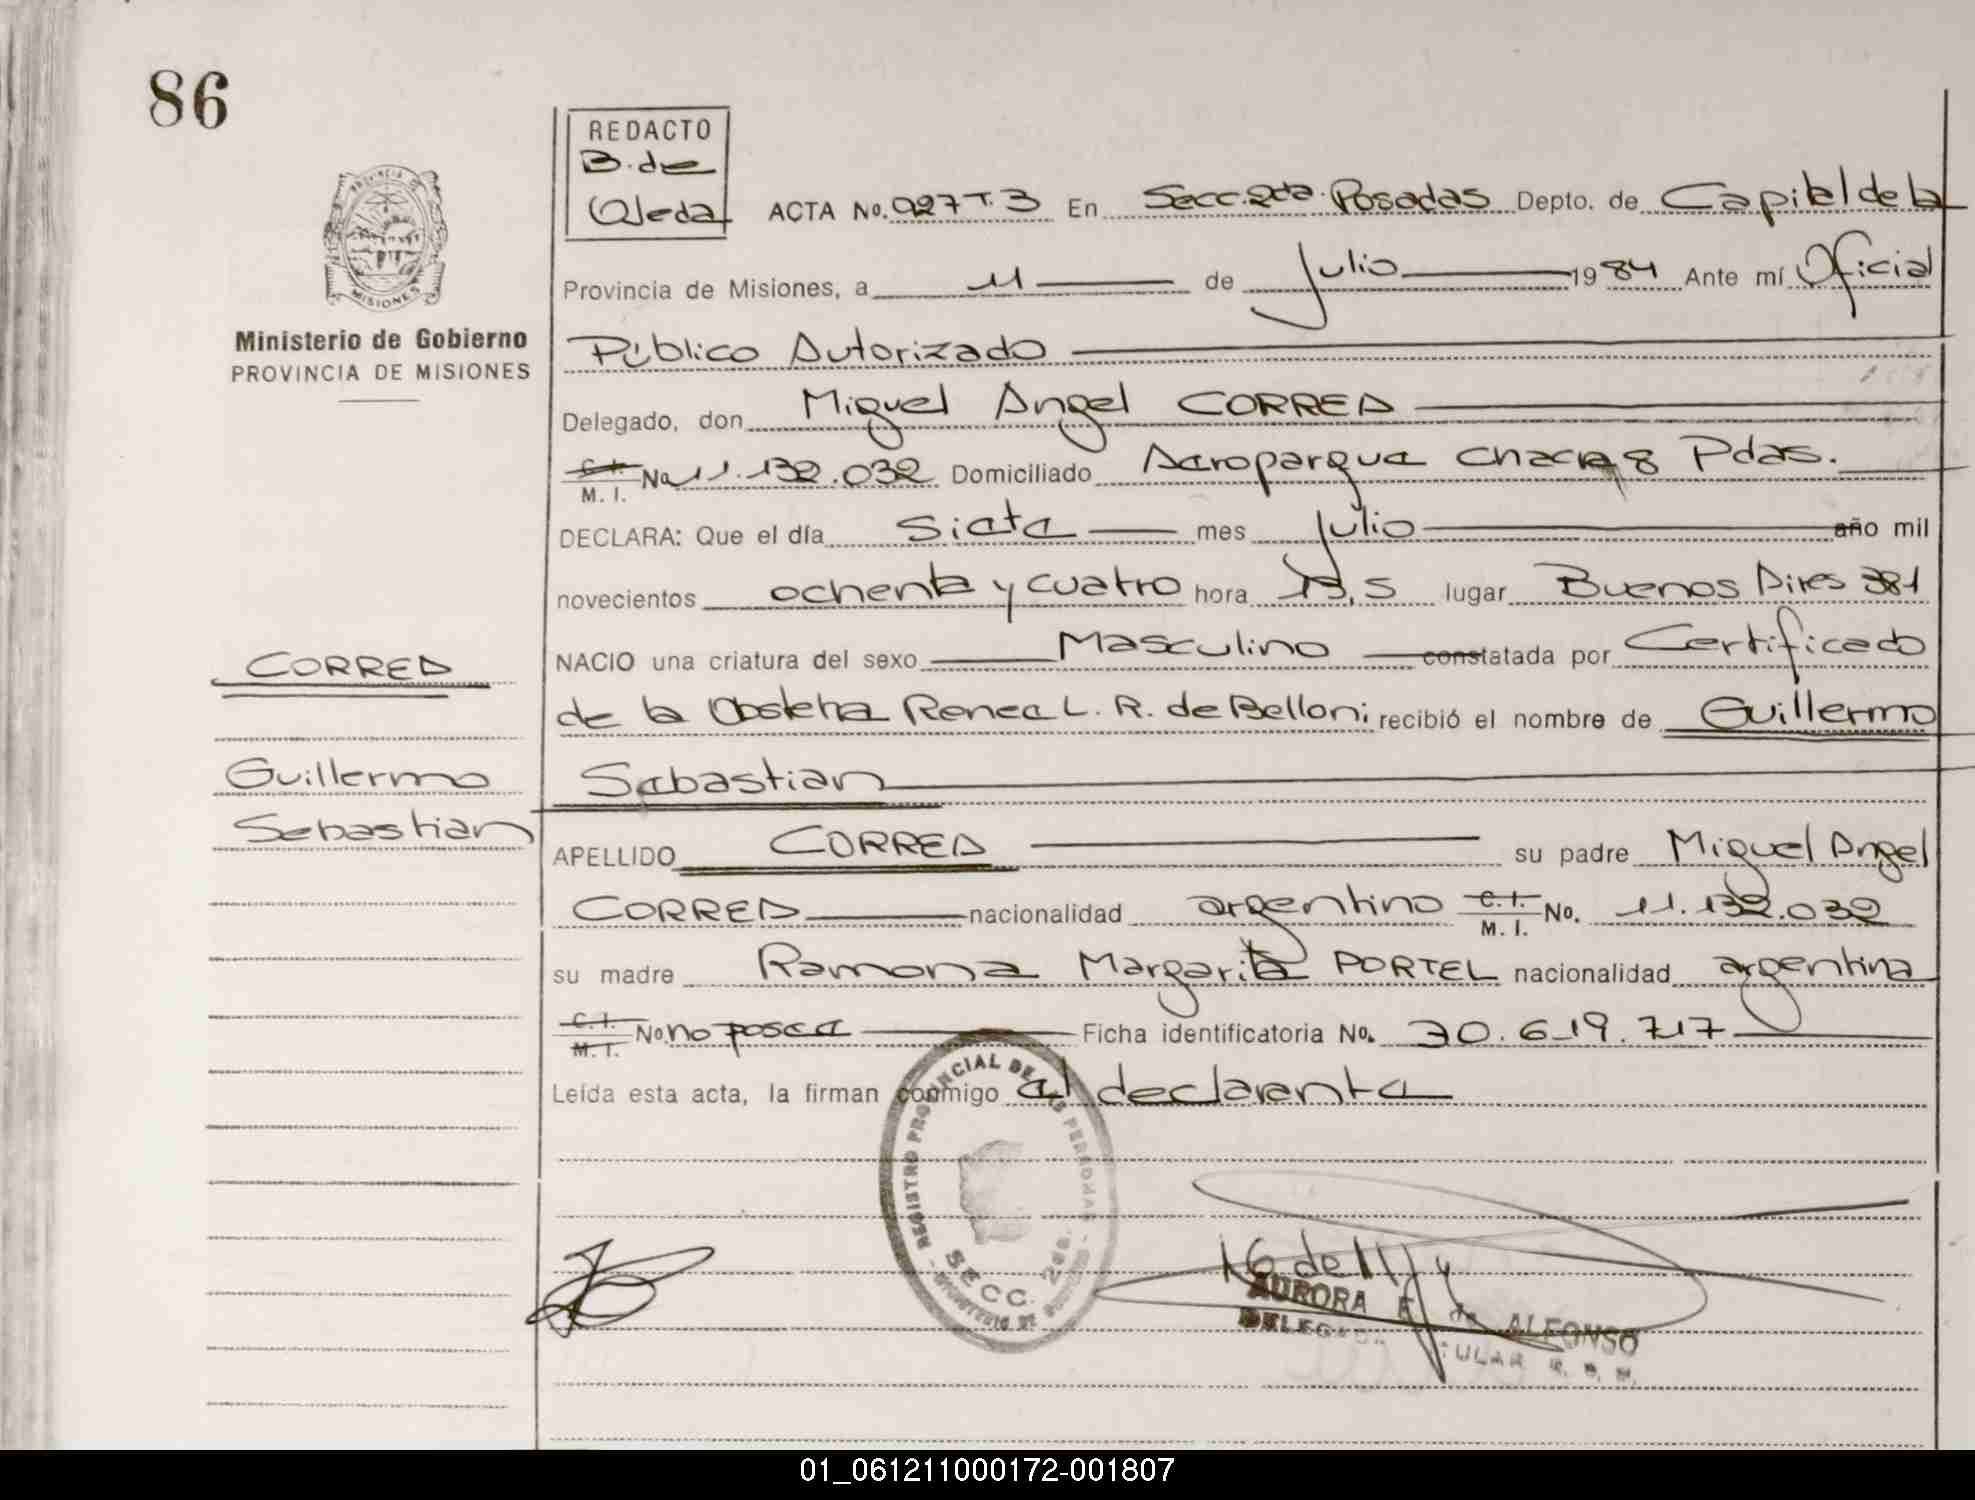 86
REDACTO
B. de
Ojeda
ACTA No. 927 T. 3 En Secc. 2da. Posadas Depto. de Capital de la
PROVINCIA DE
MISIONES
Provincia de Misiones, a 11 de Julio 1984 Ante mí Oficial
Ministerio de Gobierno
PROVINCIA DE MISIONES
Público Autorizado
Delegado, don Miguel Angel CORREA
C. I.
M. I. No 11.132.032 Domiciliado Aeroparque Chacra 8 Pdas.
DECLARA: Que el día Siete mes Julio año mil
novecientos ochenta y cuatro hora 13,5 lugar Buenos Aires 381
CORREA
NACIO una criatura del sexo Masculino constatada por Certificado
de la Obstetra Renee L. R. de Belloni recibió el nombre de Guillermo
Guillermo
Sebastian
Sebastian
APELLIDO CORREA su padre Miguel Angel
CORREA nacionalidad argentino C. I.
M. I. No. 11.132.032
su madre Ramona Margarita PORTEL nacionalidad argentina
C. I.
M. I. No. no posee Ficha identificatoria No. 30.619.717
Leída esta acta, la firman conmigo el declarante
REGISTRO PROVINCIAL DE LAS PERSONAS
SECC. 2da.
AURORA de ALFONSO
R. P.
01_061211000172-001807